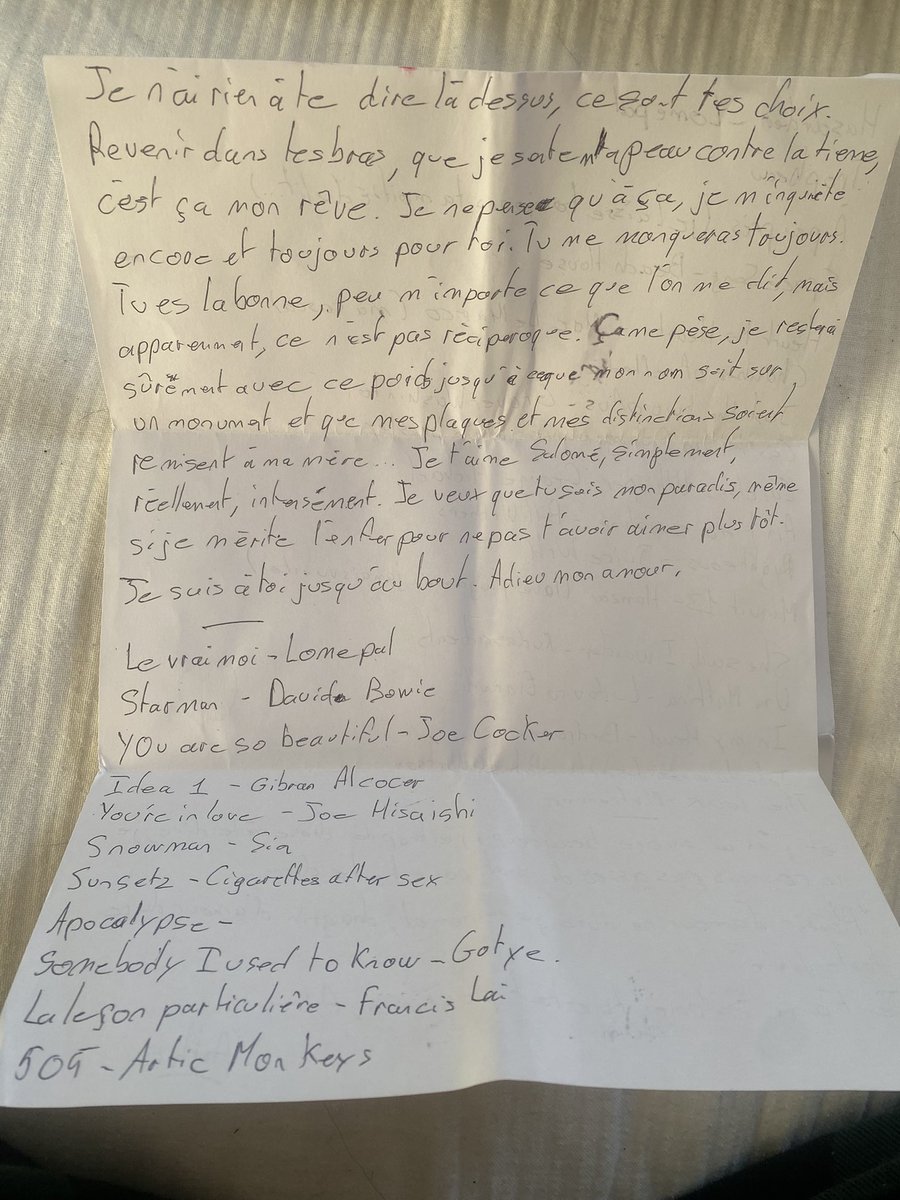 Je n'ai rien à te dire là dessus, ce sont tes choix.
Revenir dans tes bras, que je sente ta peau contre la tiene,
c'est ça mon rêve. Je ne pense qu'à ça, je m'inquiète
encore et toujours pour toi. Tu me manqueras toujours.
Tu es la bonne, peu m'importe ce que l'on me dit, mais
apparemmat, ce n'est pas réciproque. Ça me pèse, je resterai
sûrement avec ce poids jusqu'à ce que mon nom soit sur
un monumat et que mes plaques et mes distinctions soient
remisent à ma mère... Je t'aime Salomé, simplement,
réellement, intensément. Je veux que tu sois mon paradis, même
si je mérite l'enfer pour ne pas t'avoir aimer plus tôt.
Je suis à toi jusqu'au bout. Adieu mon amour.
Le vrai moi - Lomepal
Starman - David Bowie
YOu are so beautiful - Joe Cocker
Idea 1 - Gibran Alcocer
You're in love - Joe Hisaishi
Snowman - Sia
Sunsetz - Cigarettes after sex
Apocalypse -
Somebody I used to know - Gotye.
La leçon particulière - Francis Lai
505 - Artic Monkeys